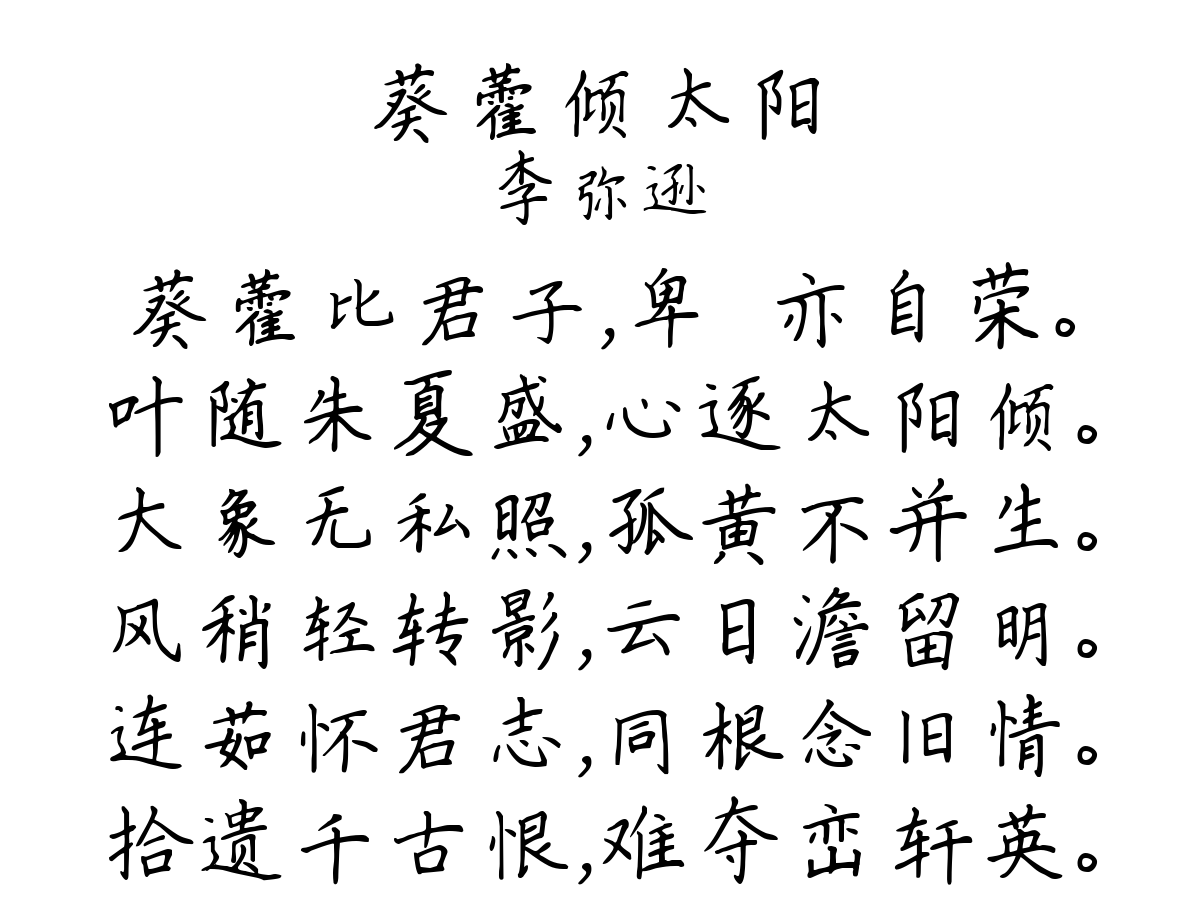 葵藿倾太阳
李弥逊
葵藿比君子,卑 亦自荣。
叶随朱夏盛,心逐太阳倾。
大象无私照,孤黄不并生。
风稍轻转影,云日澹留明。
连茹怀君志,同根念旧情。
拾遗千古恨,难夺峦轩英。